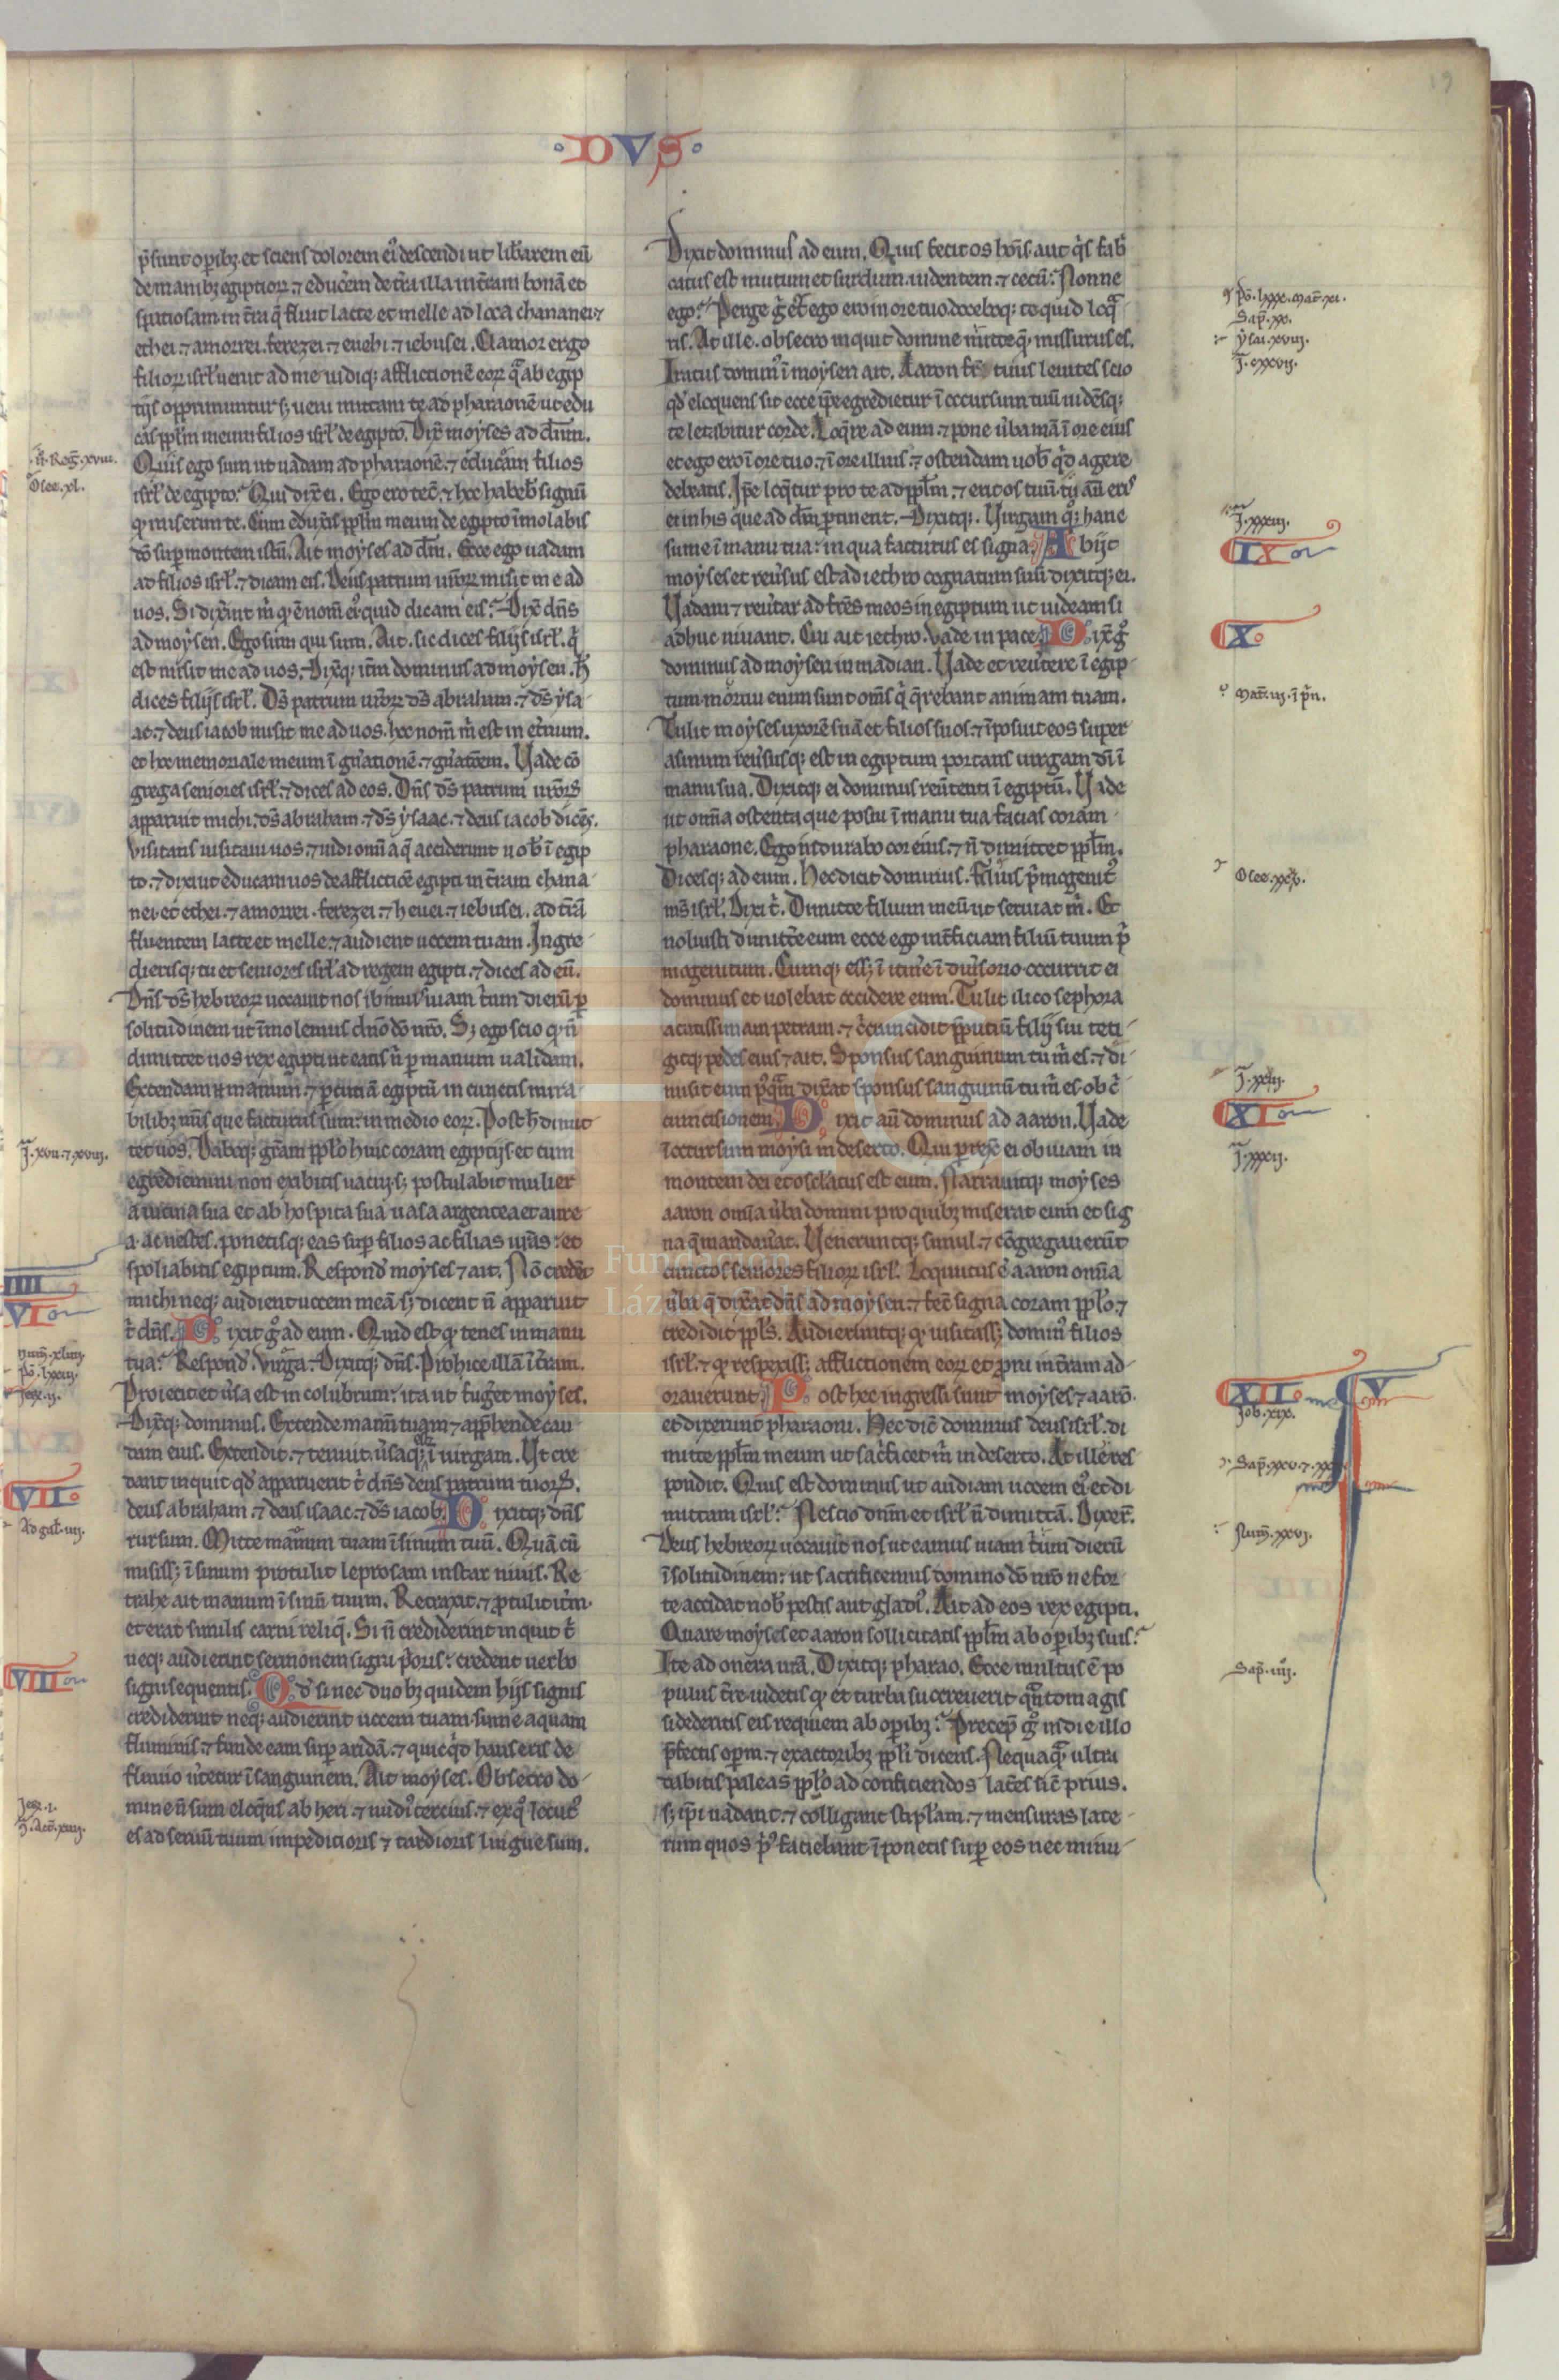 ·DVS·
19
p̄sunt operibꝫ. et sciens dolorem eiꝰ descendi ut liƀarem eū
de manibꝫ egiptioꝝ. ⁊ educerem de t̄ra illa in t̄ram bonā et
spatiosam. in t̄rā q̄ fluit lacte et melle ad loca chananei. ⁊
ethei. ⁊ amorrei. ferezei. ⁊ euehi. ⁊ iebusei. Clamor ergo
filioꝝ isrł uenit ad me uidiqꝫ afflictionē eoꝝ qᵃ ab egip
tijs opprimuntur sꝫ ueni mittam te ad pharaonē ut edu
cas ppłm meum filios isrł de egipto. Dix̄ moyses ad dn̄m.
Quis ego sum ut uadam ad pharaonē. ⁊ educam filios
isrł de egipto? Qui dix̄ ei. Ego ero tecū. ⁊ hoc habeb̄ signū
ꝙ miserim te. Cum eduxis ppłm meum de egipto īmolabis
dō suꝑ montem istū. Ait moyses ad dm̄. Ecce ego uadam
ad filios isrł. ⁊ dicam eis. Deus patrum ur̄oꝝ misit me ad
uos. Si dix̄int m̄ qͩ ē nom̄ eiꝰ. quid dicam eis? Dix̄ dn̄s
ad moysen. Ego sum qui sum. Ait. sic dices filijs isrł. q̄
est misit me ad uos. Dix̄qꝫ itm̄ dominus ad moysen. h̄
dices filijs isrł. Ds̄ patrum ur̄oꝝ ds̄ abraham. ⁊ ds̄ ysa
ac. ⁊ deus iacob misit me ad uos. hoc nom̄ m̄ est in et̄num.
et hoc memoriale meum ī gn̄ationē. ⁊ gn̄atōem. Vade cō
grega seniores isrł. ⁊ dices ad eos. Dn̄s ds̄ patrum ur̄oꝝ
apparuit michi. ds̄ abraham. ⁊ ds̄ ysaac. ⁊ deus iacob dicēs.
Visitans uisitaui uos. ⁊ uidi omīa q̄ acciderunt uob̄ ī egip
to. ⁊ dixi ut educam uos de afflictiōe egipti in t̄ram chana-
nei et ethei. ⁊ amorrei. ferezei. ⁊ heuei. ⁊ iebusei. ad t̄rā
fluentem lacte et melle. ⁊ audient uocem tuam. Ingre-
dierisqꝫ tu et seniores isrł ad regem egipti. ⁊ dices ad eū.
Dn̄s ds̄ hebreoꝝ uocauit nos ibimus uiam t̄um dierū ꝑ
solitudinem ut īmolemus dn̄o dō nr̄o. Sꝫ ego scio ꝙ n̄
dimittet uos rex egipti ut eatis n̄ ꝑ manum ualidam.
Extendam manum. ⁊ ꝑcutiā egiptū in cunctis mira-
bilibꝫ mīs que facturus sum in medio eoꝝ. Post h̄ dimit
tet uos. Dabōqꝫ gr̄am ppło huic coram egiptijs. et cum
egrediemini non exibitis uacui. sꝫ postulabit mulier
a uicina sua et ab hospita sua uasa argentea et aure-
a. ac uestes. ponetisqꝫ eas suꝑ filios ac filias ur̄as. et
spoliabitis egiptum. Respond̄ moyses ⁊ ait. Nō credēt
michi neqꝫ audient uocem meā. sꝫ dicent n̄ apparuit
t̄ dn̄s. Dixit gͦ ad eum. Quid est ꝙ tenes in manu
tua? Respond̄. uirga. Dixitqꝫ dn̄s. Prohice illā ī t̄ram.
Proiecit et ūsa est in colubrum. ita ut fuḡet moyses.
Dix̄qꝫ dominus. Extende manū tuam. ⁊ appħende cau
dam eius. Extendit. ⁊ tenuit. ūsaqꝫ est ī uirgam. Ut cre
dant inquit qd̄ apparuerit t̄ dn̄s deus patrum tuoꝝ.
deus abraham. ⁊ deus isaac. ⁊ ds̄ iacob. Dixitqꝫ dn̄s
rursum. Mitte manum tuam ī sinum tuū. Quā cū
misissꝫ ī sinum protulit leprosam instar niuis. Re
trahe ait manum ī sinū tuum. Retraxit. ⁊ ꝓtulit itm̄.
et erat similis carni reliq̄. Si n̄ crediderint inquit t̄
neqꝫ audierint sermonem signi p̄oris. credent uerbo
signi sequentis. Qd̄ si nec duobꝫ quidem hijs signis
crediderint neqꝫ audierint uocem tuam. sume aquam
fluminis. ⁊ funde eam suꝑ aridā. ⁊ quicqͥd hauseris de
fluuio ūtetur ī sanguinem. Ait moyses. Obsecro do-
mine n̄ sum eloq̄ns ab heri. ⁊ nudiꝰ tercius. ⁊ exqͦ locutꝰ
es ad seruū tuum impeditioris ⁊ tardioris lingue sum.
Dixit dominus ad eum. Quis fecit os hoīs. aut qͥs fab̄
catus est mutum et surdum. uidentem. ⁊ cecū? Nonne
ego? Perge ḡ et ego ero in ore tuo. doceboqꝫ te quid loqᵃ
ris. At ille. obsecro inquit domine mitte qͫ missurus es.
Iratus domin̄ ī moysen ait. Aaron fr̄ tuus leuites scio
qd̄ eloquens sit. ecce ip̄e egredietur ī occursum tuū uidēsqꝫ
te letabitur corde. Loq̄re ad eum. ⁊ pone ūba mā ī ore eius
et ego ero ī ore tuo. ⁊ ī ore illius. ⁊ ostendam uob̄ qͥd agere
debeatis. Ip̄e loq̄tur pro te ad ppłm. ⁊ erit os tuū. tu aū eris
ei in his que ad dm̄ ꝑtinent. Dixitqꝫ. Virgam qͦqꝫ hanc
sume ī manu tua. in qua facturus es signa. Abijt
moyses et reūsus est ad iechro cognatum suū. dixitqꝫ ei.
Vadam ⁊ reūtar ad frēs meos in egiptum ut uideam si
adhuc uiuant. Cui ait iechro. Vade in pace. Dix̄ gͦ
dominus ad moysen in madian. Vade et reūtere ī egip-
tum. mortui enim sunt om̄s qͥ q̄rebant animam tuam.
Tulit moyses uxorē suā et filios suos. ⁊ īposuit eos super
asinum. reūsusqꝫ est in egiptum portans uirgam di ī
manu sua. Dixitqꝫ ei dominus reūtenti ī egiptū. Vade
ut omīa ostenta que posui ī manu tua facias coram
pharaone. Ego īdurabo cor eius. ⁊ n̄ dimittet ppłm.
Dicesqꝫ ad eum. Hec dicit dominus. filius p̄mogenitꝰ
ms̄ isrł. Dixi t̄. Dimitte filium meū ut seruiat m̄. Et
noluisti dimitt̄e eum ecce ego int̄ficiam filiū tuum p̄
mogenitum. Cumqꝫ essꝫ ī itin̄e ī diūsorio occurrit ei
dominus et uolebat occidere eum. Tulit ilico sephora
acutissimam petram. ⁊ c̄cumcidit p̄putiū filij sui. teti-
gitqꝫ pedes eius ⁊ ait. Sponsus sanguinum tu m̄ es. ⁊ di-
misit eum pͦqᵃm dix̄at sponsus sanguinū tu m̄ es ob c̄
cumcisionem. Dixit aū dominus ad aaron. Vade
ī occursum moysi in deserto. Qui ꝑrexͭ ei obuiam in
montem dei et osclatus est eum. Narrauitqꝫ moyses
aaron omīa ūba domini pro quibꝫ miserat eum et sig
na q̄ mandauat. Veneruntqꝫ simul. ⁊ cōgregauerūt
cunctos seniores filioꝝ isrł. Locutusqꝫ ē aaron omīa
ūba q̄ dix̄at dn̄s ad moysen. ⁊ fec̄ signa coram ppło. ⁊
credidit ppłs. Audieruntqꝫ ꝙ uisitassꝫ dominꝰ filios
isrł. ⁊ ꝙ respexissꝫ afflictionem eoꝝ et ꝓni in t̄ram ad-
orauerunt. Post hec ingressi sunt moyses ⁊ aarō.
et dixerunt pharaoni. Hec dic̄ dominus deus isrł. di
mitte ppłm meum ut sac̄ficet m̄ in deserto. At ille res
pondit. Quis est dominus ut audiam uocem eiꝰ et di
mittam isrł? Nescio dn̄m et isrł n̄ dimittā. Dixer̄.
Deus hebreoꝝ uocauit nos ut eamus uiam t̄um dierū
ī solitudinem. ut sacrificemus domino dō nr̄o ne for
te accidat nob̄ pestis aut gladiꝰ. Ait ad eos rex egipti.
Quare moyses et aaron sollicitatis ppłm ab oꝑibꝫ suis?
Ite ad onera ur̄a. Dixitqꝫ pharao. Ecce multus ē po
pulus t̄re. uidetis ꝙ et turba succreuerit. qͣnto magis
si dederitis eis requiem ab oꝑibꝫ? Precep̄ gͦ in die illo
p̄fectis oꝑm. ⁊ exactoribꝫ ppłi dicens. Nequaqᵃ ultra
dabitis paleas ppło ad conficiendos lat̄es sic̄ prius.
sꝫ ip̄i uadant. ⁊ colligant stipłam. ⁊ mensuras late-
rum quos pͥꝰ faciebant īponetis suꝑ eos nec minu-
Osee. xl.
IIII
VI
VII
Ad gał. iiij.
VIII
Sap̄. xx.
ysai. xviij.
IX
X
Osee. xxv.
XI
XII
V
Job. xix.
Num̄. xxvi.
Sap̄. iiij.
Fundación
Lázaro